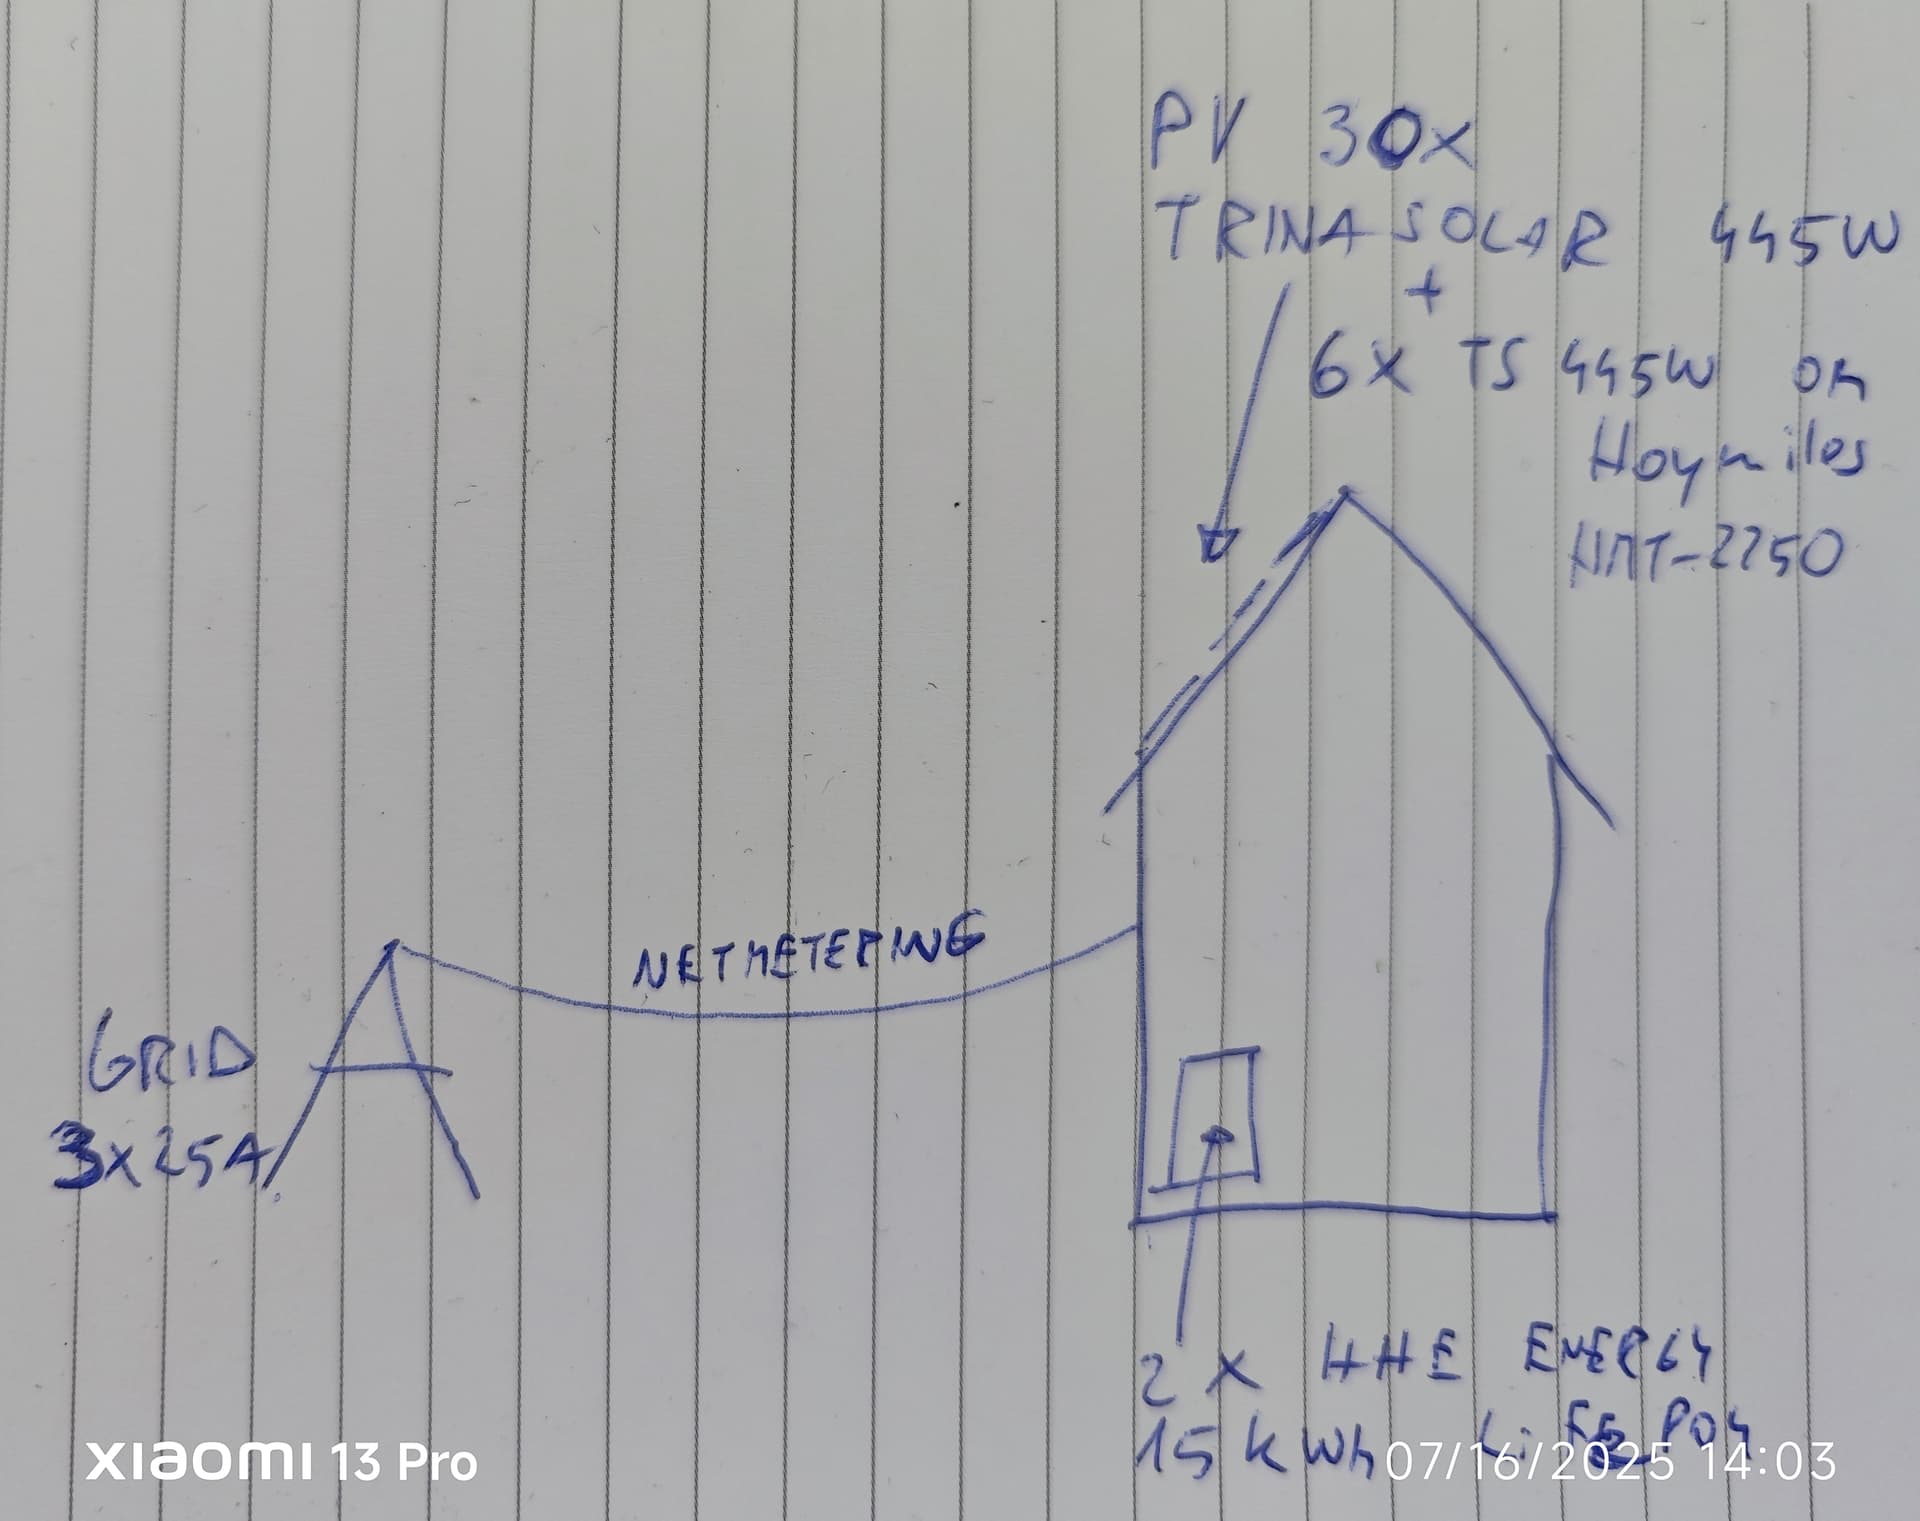 PV 30x
TRINA SOLAR 445W
+
6x TS 445W on
Hoymiles
HMT-2250
NETMETERING
GRID
3x25A
2 x HHE ENERGY
15kWh LiFePO4
XIAOMI 13 Pro
07/16/2025 14:03